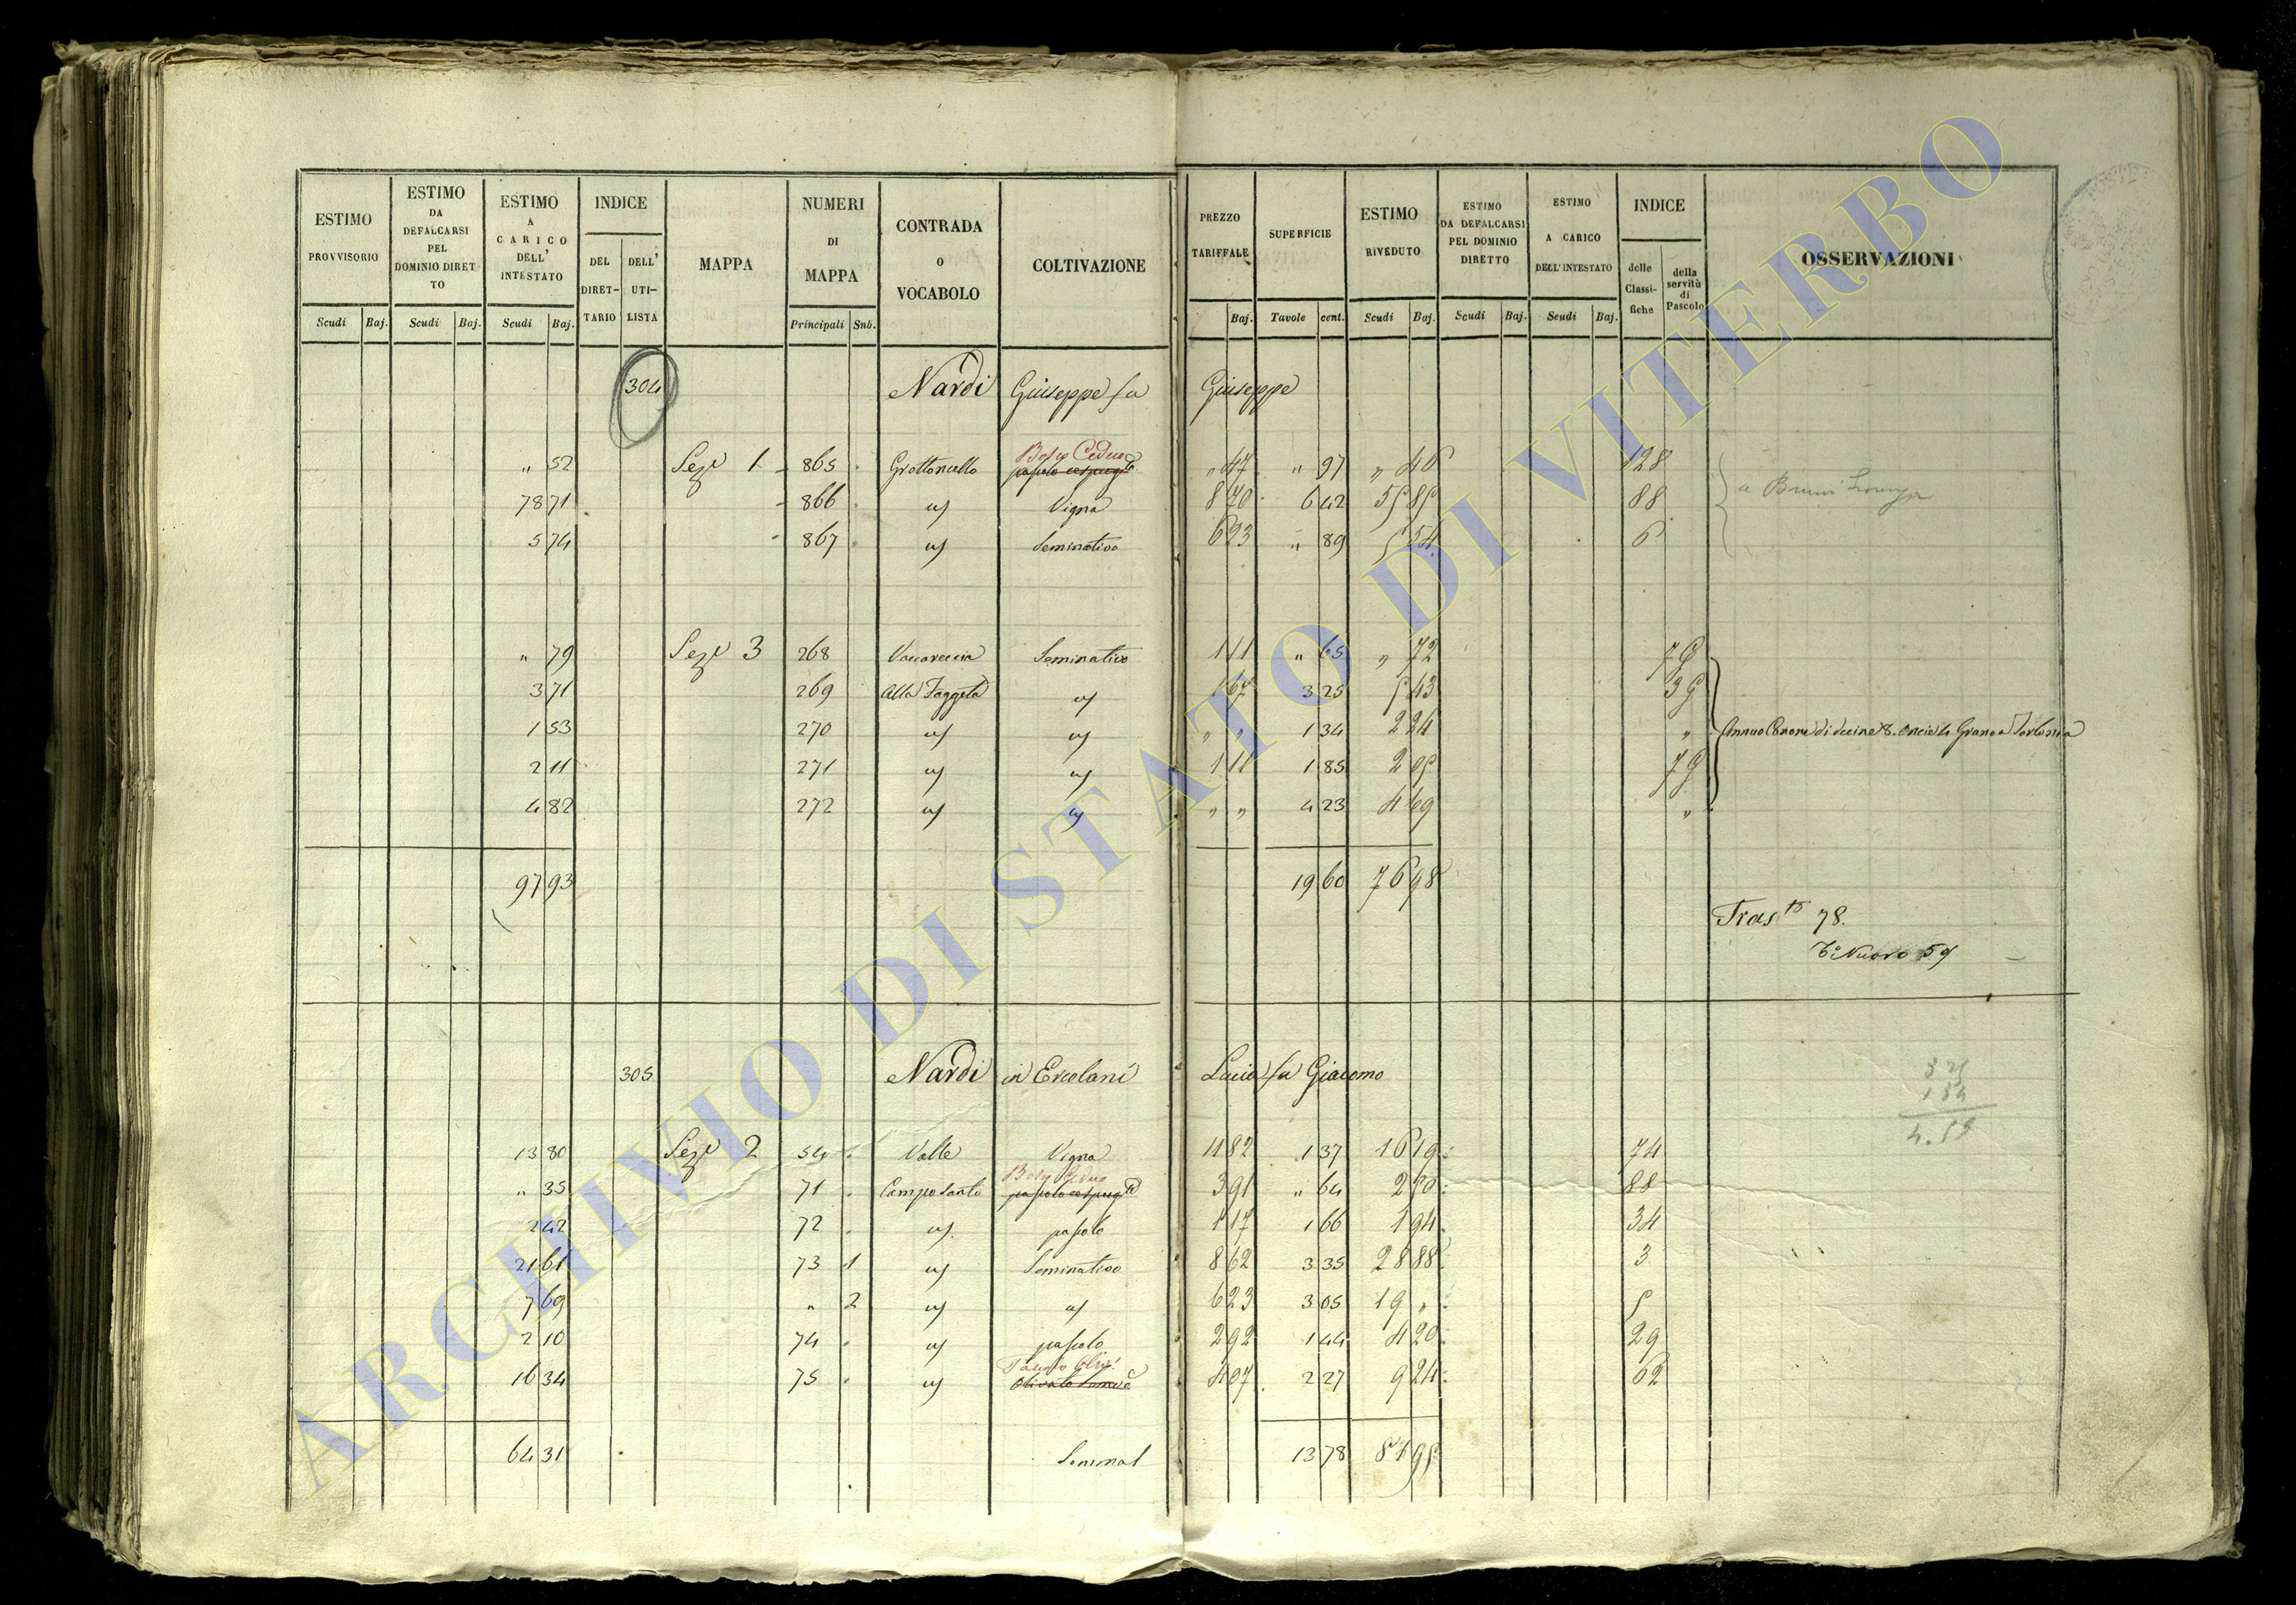 ESTIMO PROVVISORIO
ESTIMO DA DEFALCARSI PEL DOMINIO DIRETTO
ESTIMO A CARICO DELL' INTESTATO
INDICE
DEL DIRETTARIO
DELL' UTILISTA
MAPPA
NUMERI DI MAPPA
CONTRADA O VOCABOLO
COLTIVAZIONE
PREZZO TARIFFALE
SUPERFICIE
ESTIMO RIVEDUTO
ESTIMO DA DEFALCARSI PEL DOMINIO DIRETTO
ESTIMO A CARICO DELL'INTESTATO
INDICE
delle Classifiche
della servitù di Pascolo
OSSERVAZIONI
Scudi Baj. Scudi Baj. Scudi Baj. Principali Sub. Baj. Tavole cent. Scudi Baj. Scudi Baj. Scudi Baj.
304 Nardi Giuseppe fu Giuseppe
Bosco Ceduo
" 52 Sezе 1 865 Grottoncello pascolo cespugto " 47 " 97 " 46 128
78 71 866 " Vigna 8 70 6 42 55 85 88 a Bruni
5 74 867 " Seminativo 6 23 " 89 5 54 6
" 79 Sezе 3 268 Vaccareccia Seminativo 1 11 " 65 " 72 79
3 71 269 Alla Faggeta " 1 67 3 25 5 43 35
1 53 270 " " " " 1 34 2 24 " Annuo Canone di decine 8. oncie 4 Grano a Torlonia
2 11 271 " " 1 11 1 85 2 05 79
4 82 272 " " " " 4 23 4 69 "
97 93 19 60 76 98
Trasto 78.
Nuovo 59
305 Nardi in Ercolani Lucia fu Giacomo
3 25
1 34
4.59
13 80 Sezе 2 54 Valle Vigna 11 82 1 37 16 19 74
Bosco Ceduo
" 35 71 Camposanto pascolo cespugto 3 91 " 64 2 50 88
2 42 72 " pascolo 1 17 1 66 1 94 34
21 61 73 1 " Seminativo 8 62 3 35 28 88 3
7 69 " 2 " " 6 23 3 05 19 " 5
2 10 74 " pascolo 2 92 1 44 4 20 29
16 34 75 " 4 07 2 27 9 24 62
64 31 13 78
ARCHIVIO DI STATO DI VITERBO